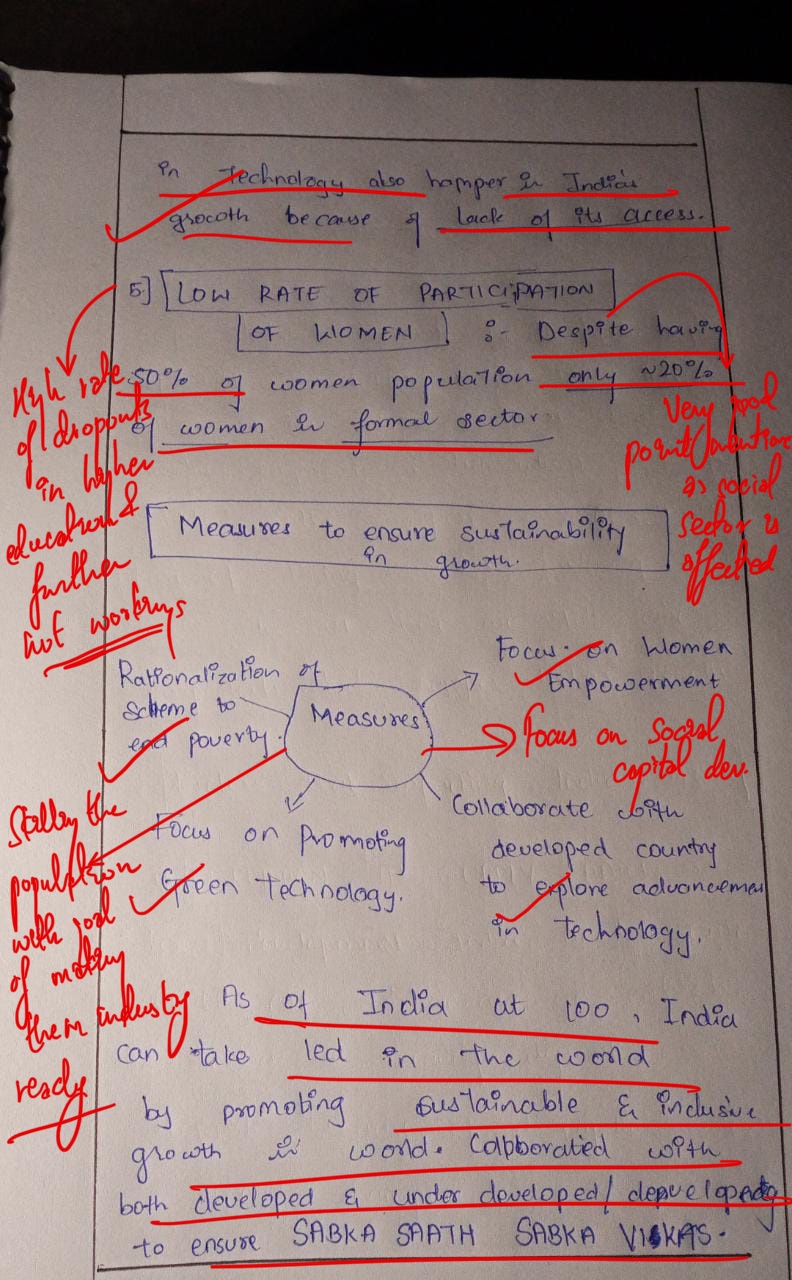 in Technology also hamper in India's
growth because of lack of its access.
5] LOW RATE OF PARTICIPATION
OF WOMEN :- Despite having
50% of women population only ~20%
of women in formal sector
High rate
of dropouts
in higher
education &
further
not workings
Very good
point
as social
sector is
affected
Measures to ensure sustainability
in growth.
Measures
Rationalization of
scheme to
end poverty.
Focus on Women
Empowerment
Focus on Social
capital dev.
Focus on Promoting
Green Technology.
Collaborate with
developed country
to explore advancemen
in technology.
the
population
with goal
of making
them industry
ready
As of India at 100, India
can take led in the world
by promoting sustainable & inclusive
growth in world. Colpborated with
both developed & under developed/
to ensure SABKA SAATH SABKA VIKAS.